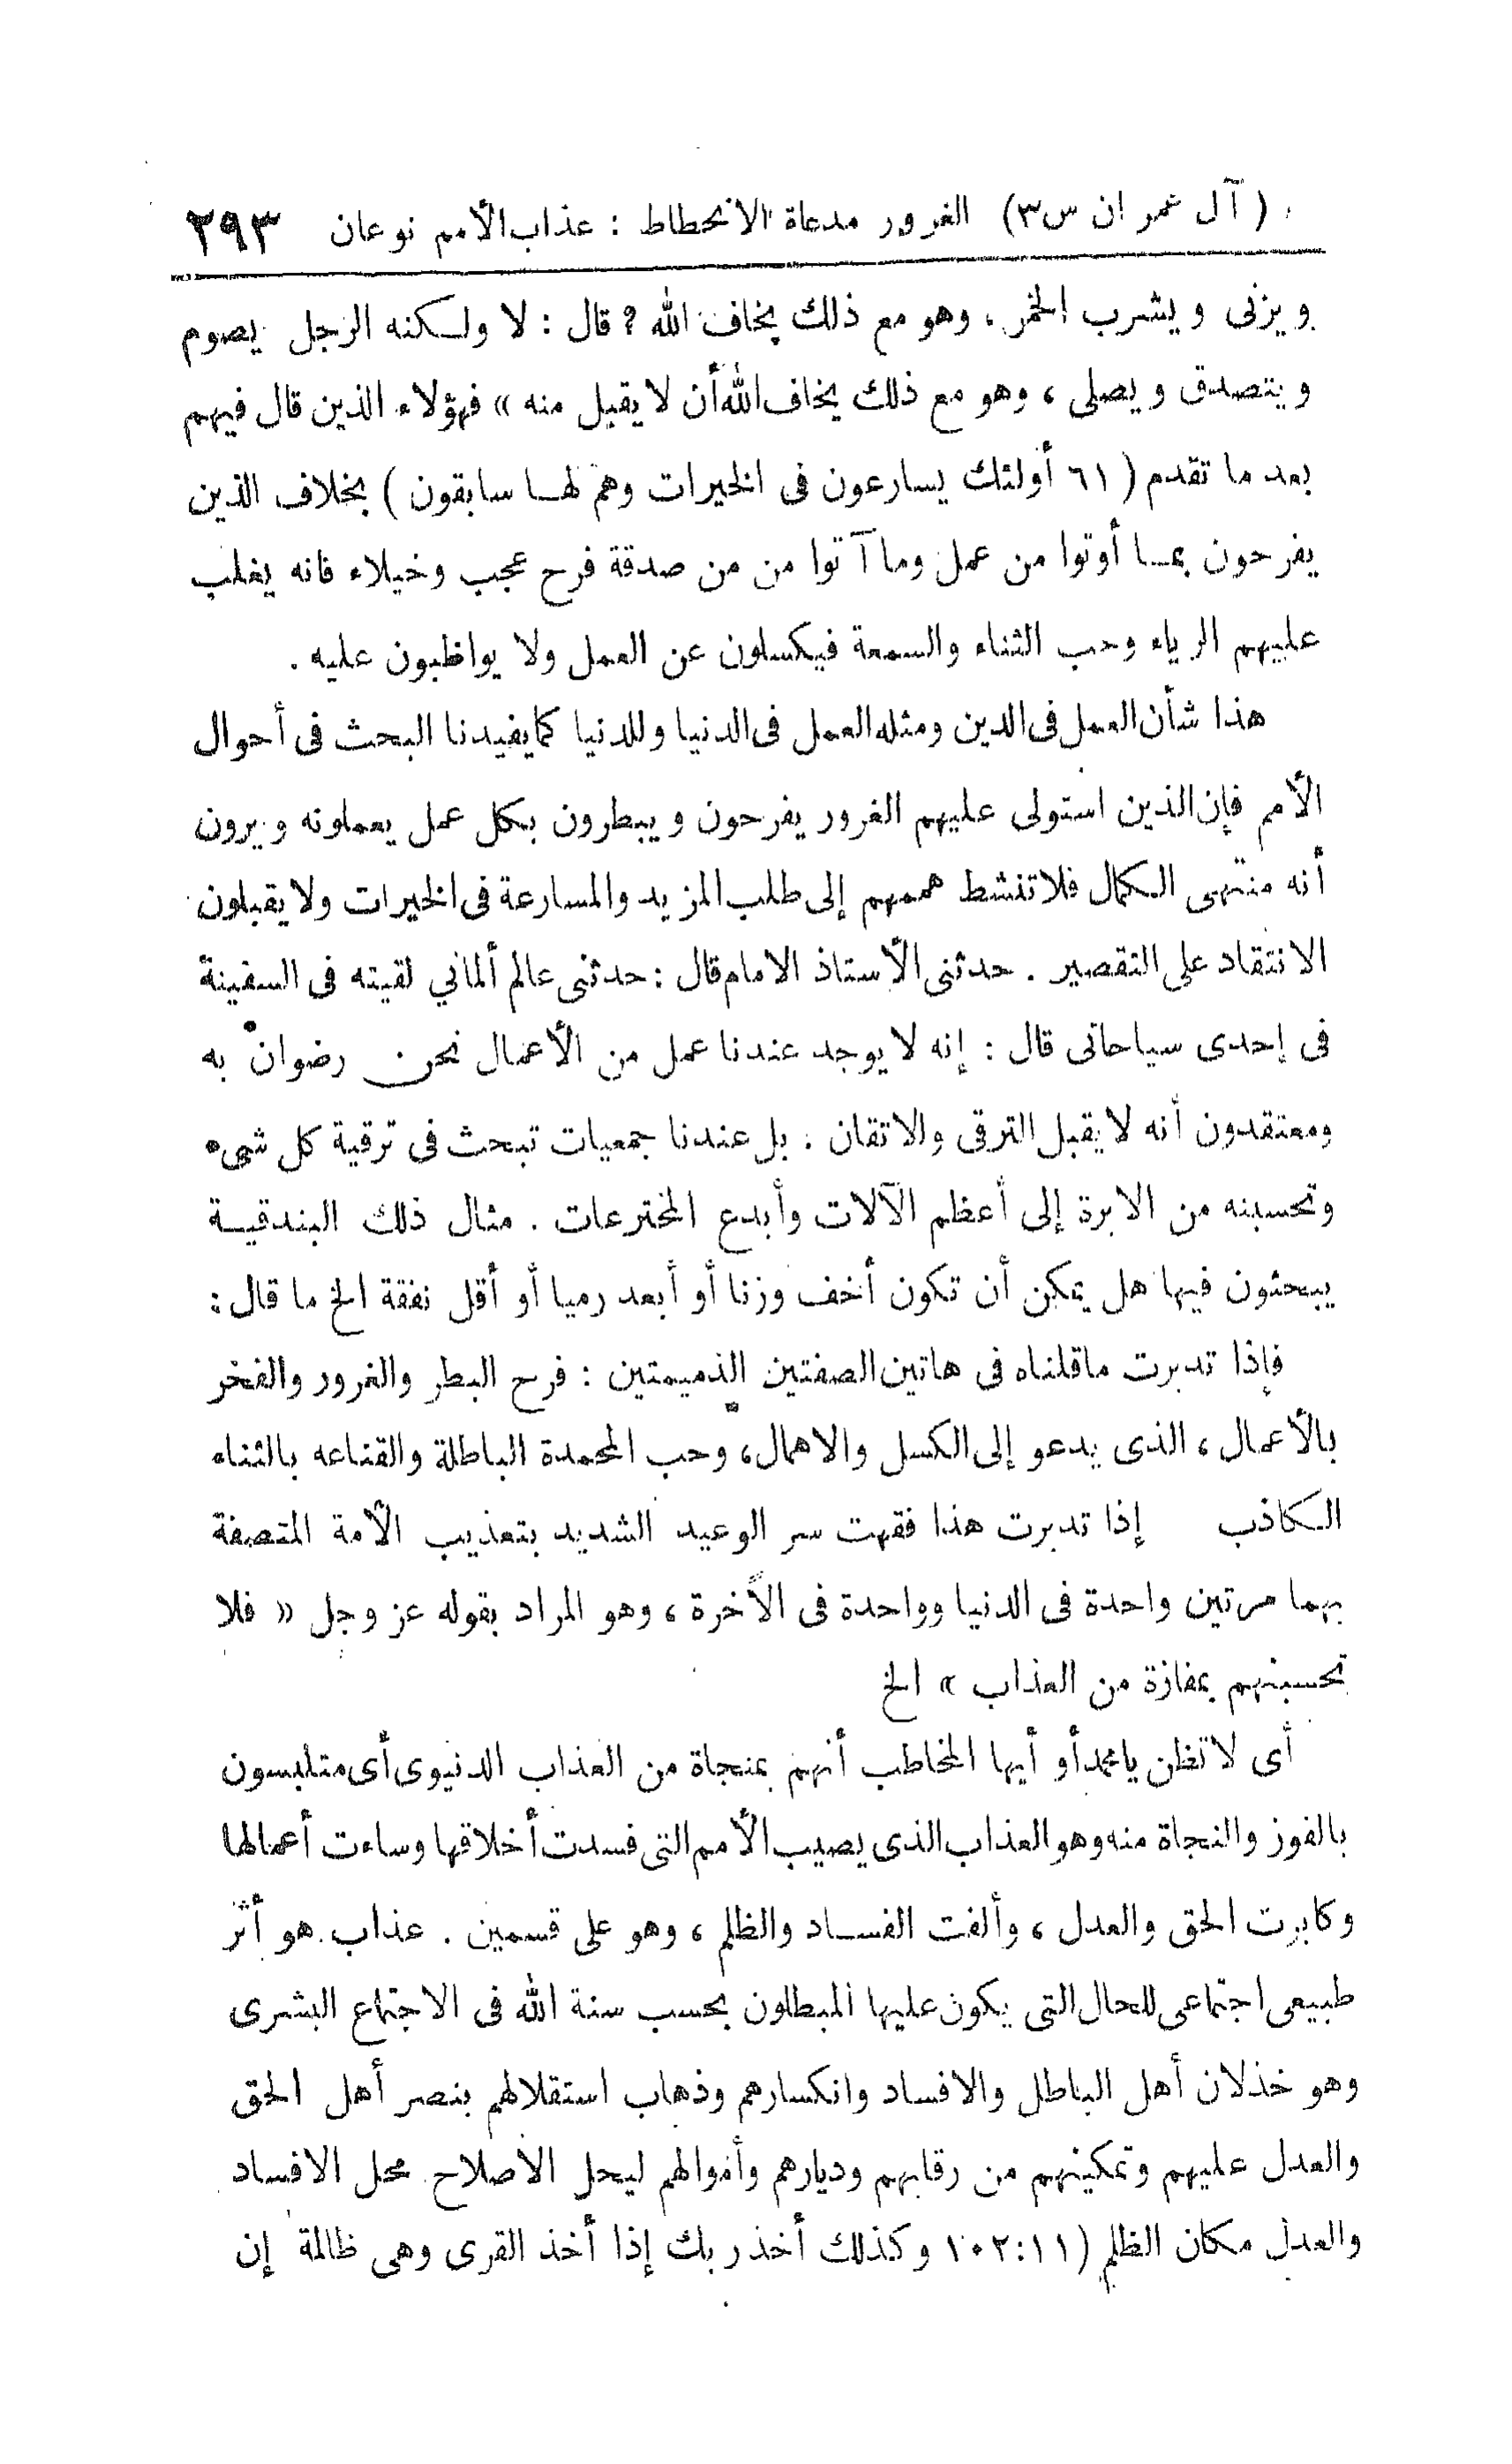 ( آل عمران س٣) الغرور مدعاة الانحطاط : عذاب الأمم نوعان ٢٩٣
ويزنى ويشرب الخمر ، وهو مع ذلك يخاف الله ؟ قال : لا ولكنه الرجل يصوم
ويتصدق ويصلى ، وهو مع ذلك يخاف الله أن لا يقبل منه » فهؤلاء الذين قال فيهم
بعد ما تقدم ( ٦١ أولئك يسارعون فى الخيرات وهم لها سابقون ) بخلاف الذين
يفرحون بما أوتوا من عمل وما آتوا من من صدقة فرح عجب وخيلاء فانه يغلب
عليهم الرياء وحب الثناء والسمعة فيكسلون عن العمل ولا يواظبون عليه .
هذا شأن العمل فى الدين ومثله العمل فى الدنيا وللدنيا كما يفيدنا البحث فى أحوال
الأمم فإن الذين استولى عليهم الغرور يفرحون ويبطرون بكل عمل يعملونه ويرون
أنه منتهى الكمال فلا تنشط هممهم إلى طلب المزيد والمسارعة فى الخيرات ولا يقبلون
الانتقاد على التقصير . حدثنى الأستاذ الامام قال : حدثنى عالم ألماني لقيته فى السفينة
فى إحدى سياحاتى قال : إنه لا يوجد عندنا عمل من الأعمال نحن رضوان به
ومعتقدون أنه لا يقبل الترقى والاتقان . بل عندنا جمعيات تبحث فى ترقية كل شىء
وتحسينه من الابرة إلى أعظم الآلات وأبدع المخترعات . مثال ذلك البندقية
يبحثون فيها هل يمكن أن تكون أخف وزنا أو أبعد رميا أو أقل نفقة الخ ما قال :
فإذا تدبرت ما قلناه فى هاتين الصفتين الذميمتين : فرح البطر والغرور والفخر
بالأعمال ، الذى يدعو إلى الكسل والاهمال ، وحب المحمدة الباطلة والقناعه بالثناء
الكاذب إذا تدبرت هذا فقهت سر الوعيد الشديد بتعذيب الأمة المتصفة
بهما مرتين واحدة فى الدنيا وواحدة فى الآخرة ، وهو المراد بقوله عز وجل « فلا
تحسبنهم بمفازة من العذاب » الخ
أى لا تظن يا محمد أو أيها المخاطب أنهم بمنجاة من العذاب الدنيوى أى متلبسون
بالفوز والنجاة منه وهو العذاب الذى يصيب الأمم التى فسدت أخلاقها وساءت أعمالها
وكابرت الحق والعدل ، وألفت الفساد والظلم ، وهو على قسمين . عذاب هو أثر
طبيعى اجتماعى للحال التى يكون عليها المبطلون بحسب سنة الله فى الاجتماع البشرى
وهو خذلان أهل الباطل والافساد وانكسارهم وذهاب استقلالهم بنصر أهل الحق
والعدل عليهم وتمكينهم من رقابهم وديارهم وأموالهم ليحل الاصلاح محل الافساد
والعدل مكان الظلم (١١:١٠٢ وكذلك أخذ ربك إذا أخذ القرى وهى ظالمة إن